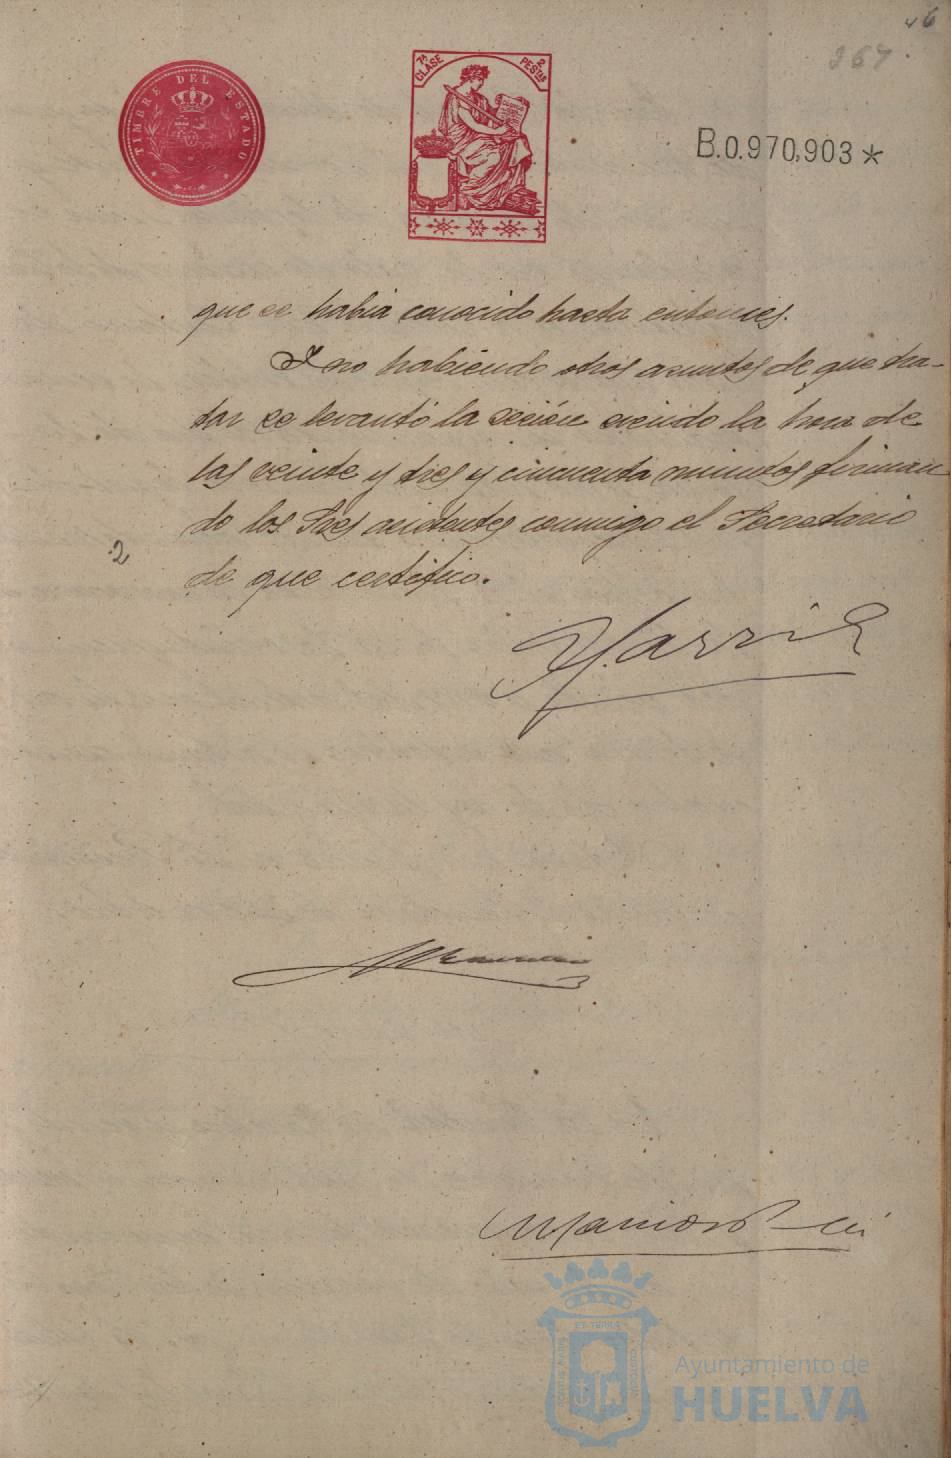 46
367
TIMBRE DEL ESTADO
7ª CLASE 2 PESTAS
B.0.970,903*
que se habia conocido hasta entonces.
Y no habiendo otros asuntos de que tra-
tar se levantó la seción siendo la hora de
las veinte y tres y cincuenta minutos firman
do los Sres asistentes conmigo el Secretario
de que certifico.
2
Ayuntamiento de
HUELVA